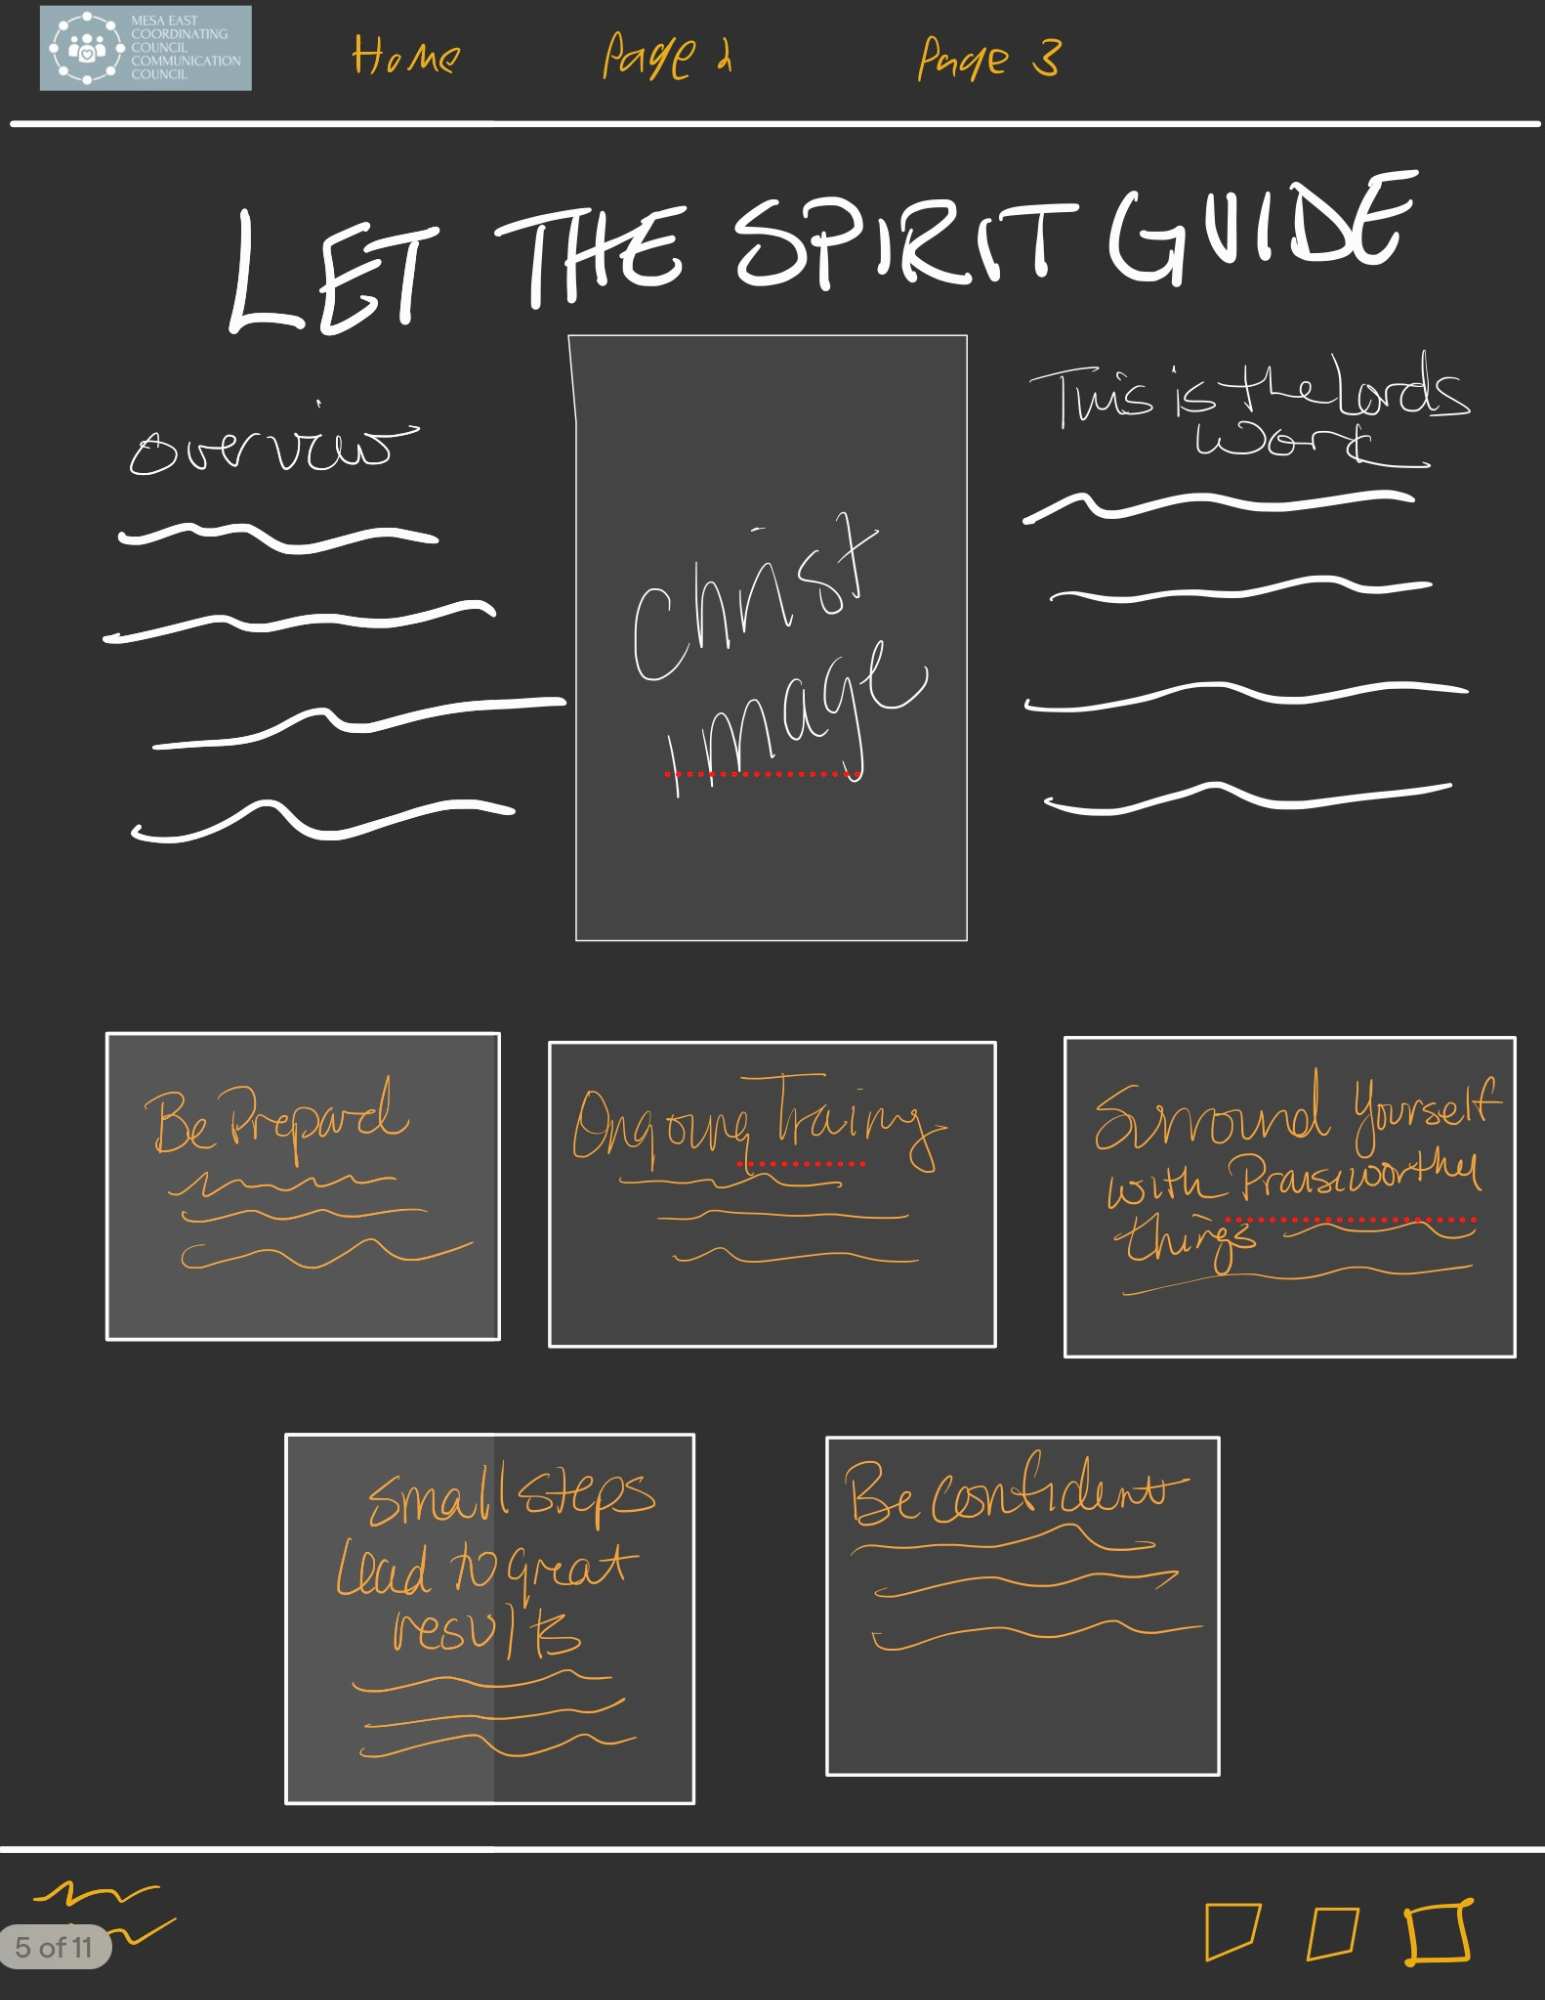 MESA EAST
COORDINATING
COUNCIL
COMMUNICATION
COUNCIL
Home
Page 2
Page 3
LET THE SPIRIT GUIDE
overview
This is the Lords
Work
Christ
Image
Be Prepared
Ongoing Training
Surround Yourself
with Praiseworthy
things
Small steps
Lead to great
results
Be Confident
5 of 11